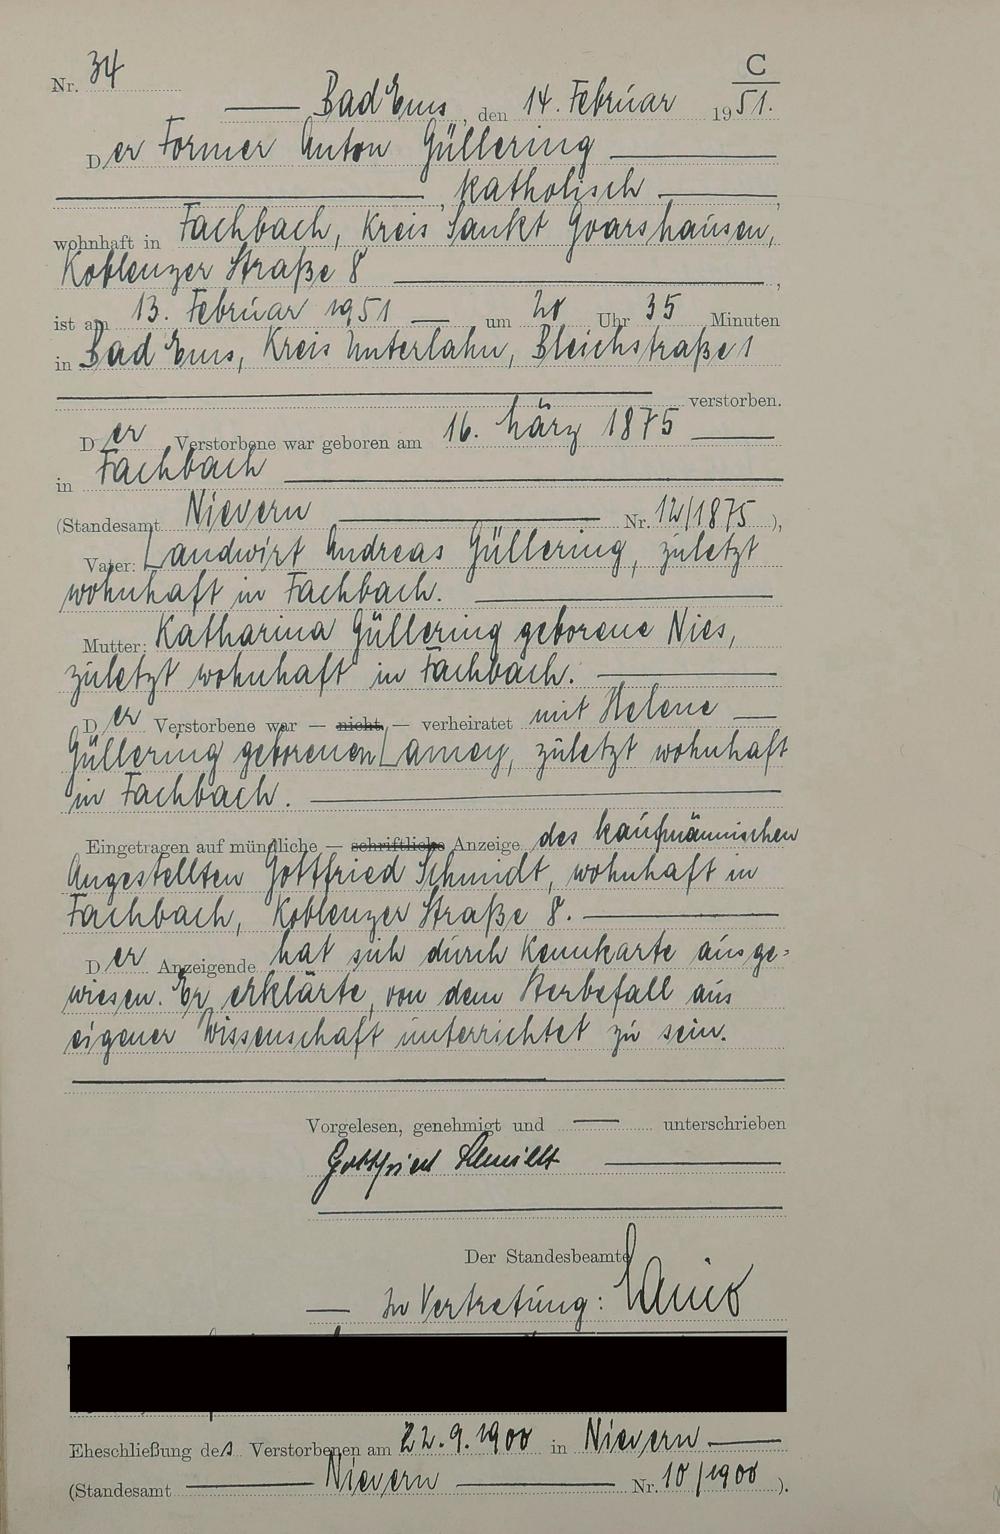 C
Nr. 34
Bad Ems, den 14. Februar 1951.
Der Former Anton Güllering
, katholisch ,
wohnhaft in Fachbach, Kreis Sankt Goarshausen,
Koblenzer Straße 8 ,
ist am 13. Februar 1951 um 20 Uhr 35 Minuten
in Bad Ems, Kreis Unterlahn, Bleichstraße 1
verstorben.
Der Verstorbene war geboren am 16. März 1875
in Fachbach
(Standesamt Nievern Nr. 12/1875 ),
Vater: Landwirt Andreas Güllering, zuletzt
wohnhaft in Fachbach.
Mutter: Katharina Güllering geborene Nies,
zuletzt wohnhaft in Fachbach.
Der Verstorbene war — nicht — verheiratet mit Helene
Güllering geborenen Lamey, zuletzt wohnhaft
in Fachbach.
Eingetragen auf mündliche — schriftliche Anzeige des kaufmännischen
Angestellten Gottfried Schmidt, wohnhaft in
Fachbach, Koblenzer Straße 8.
Der Anzeigende hat sich durch Kennkarte ausge=
wiesen. Er erklärte, von dem Sterbefall aus
eigener Wissenschaft unterrichtet zu sein.
Vorgelesen, genehmigt und unterschrieben
Gottfried Schmidt
Der Standesbeamte
In Vertretung:
Eheschließung des Verstorbenen am 22.9.1900 in Nievern
(Standesamt Nievern Nr. 10/1900 ).